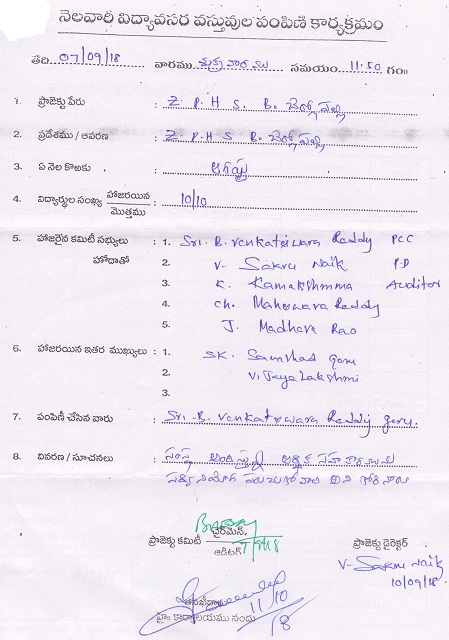 నెలవారీ విద్యావసర వస్తువుల పంపిణి కార్యక్రమం
తేది 07/09/18 వారము శుక్రవారము సమయం 11.50 గం॥
1. ప్రాజెక్టు పేరు : Z. P. H. S. B.
2. ప్రదేశము / ఆవరణ : Z. P. H S B.
3. ఏ నెల కొఱకు : ఆగష్టు
4. విద్యార్థుల సంఖ్య హాజరయిన / మొత్తము : 10/10
5. హాజరైన కమిటీ సభ్యులు హోదాతో : 1. Sri. B. Venkateswara Reddy PCC
2. V. Sakru Naik P.D
3. K. Kamakshmma Auditor
4. Ch. Maheswara Reddy
5. J. Madhava Rao
6. హాజరయిన ఇతర ముఖ్యులు : 1. SK. Samshad garu
2. Vijaya Lakshmi
3.
7. పంపిణీ చేసిన వారు : Sri. B. Venkateswara Reddy garu.
8. వివరణ / సూచనలు : సంస్థ
ప్రాజెక్టు కమిటీ చైర్‌మెన్ / ఆడిటర్ 7/9/18
ప్రాజెక్టు డైరెక్టర్
V. Sakru Naik
10/09/18
11/10/18
హై కార్యాలయము నందు